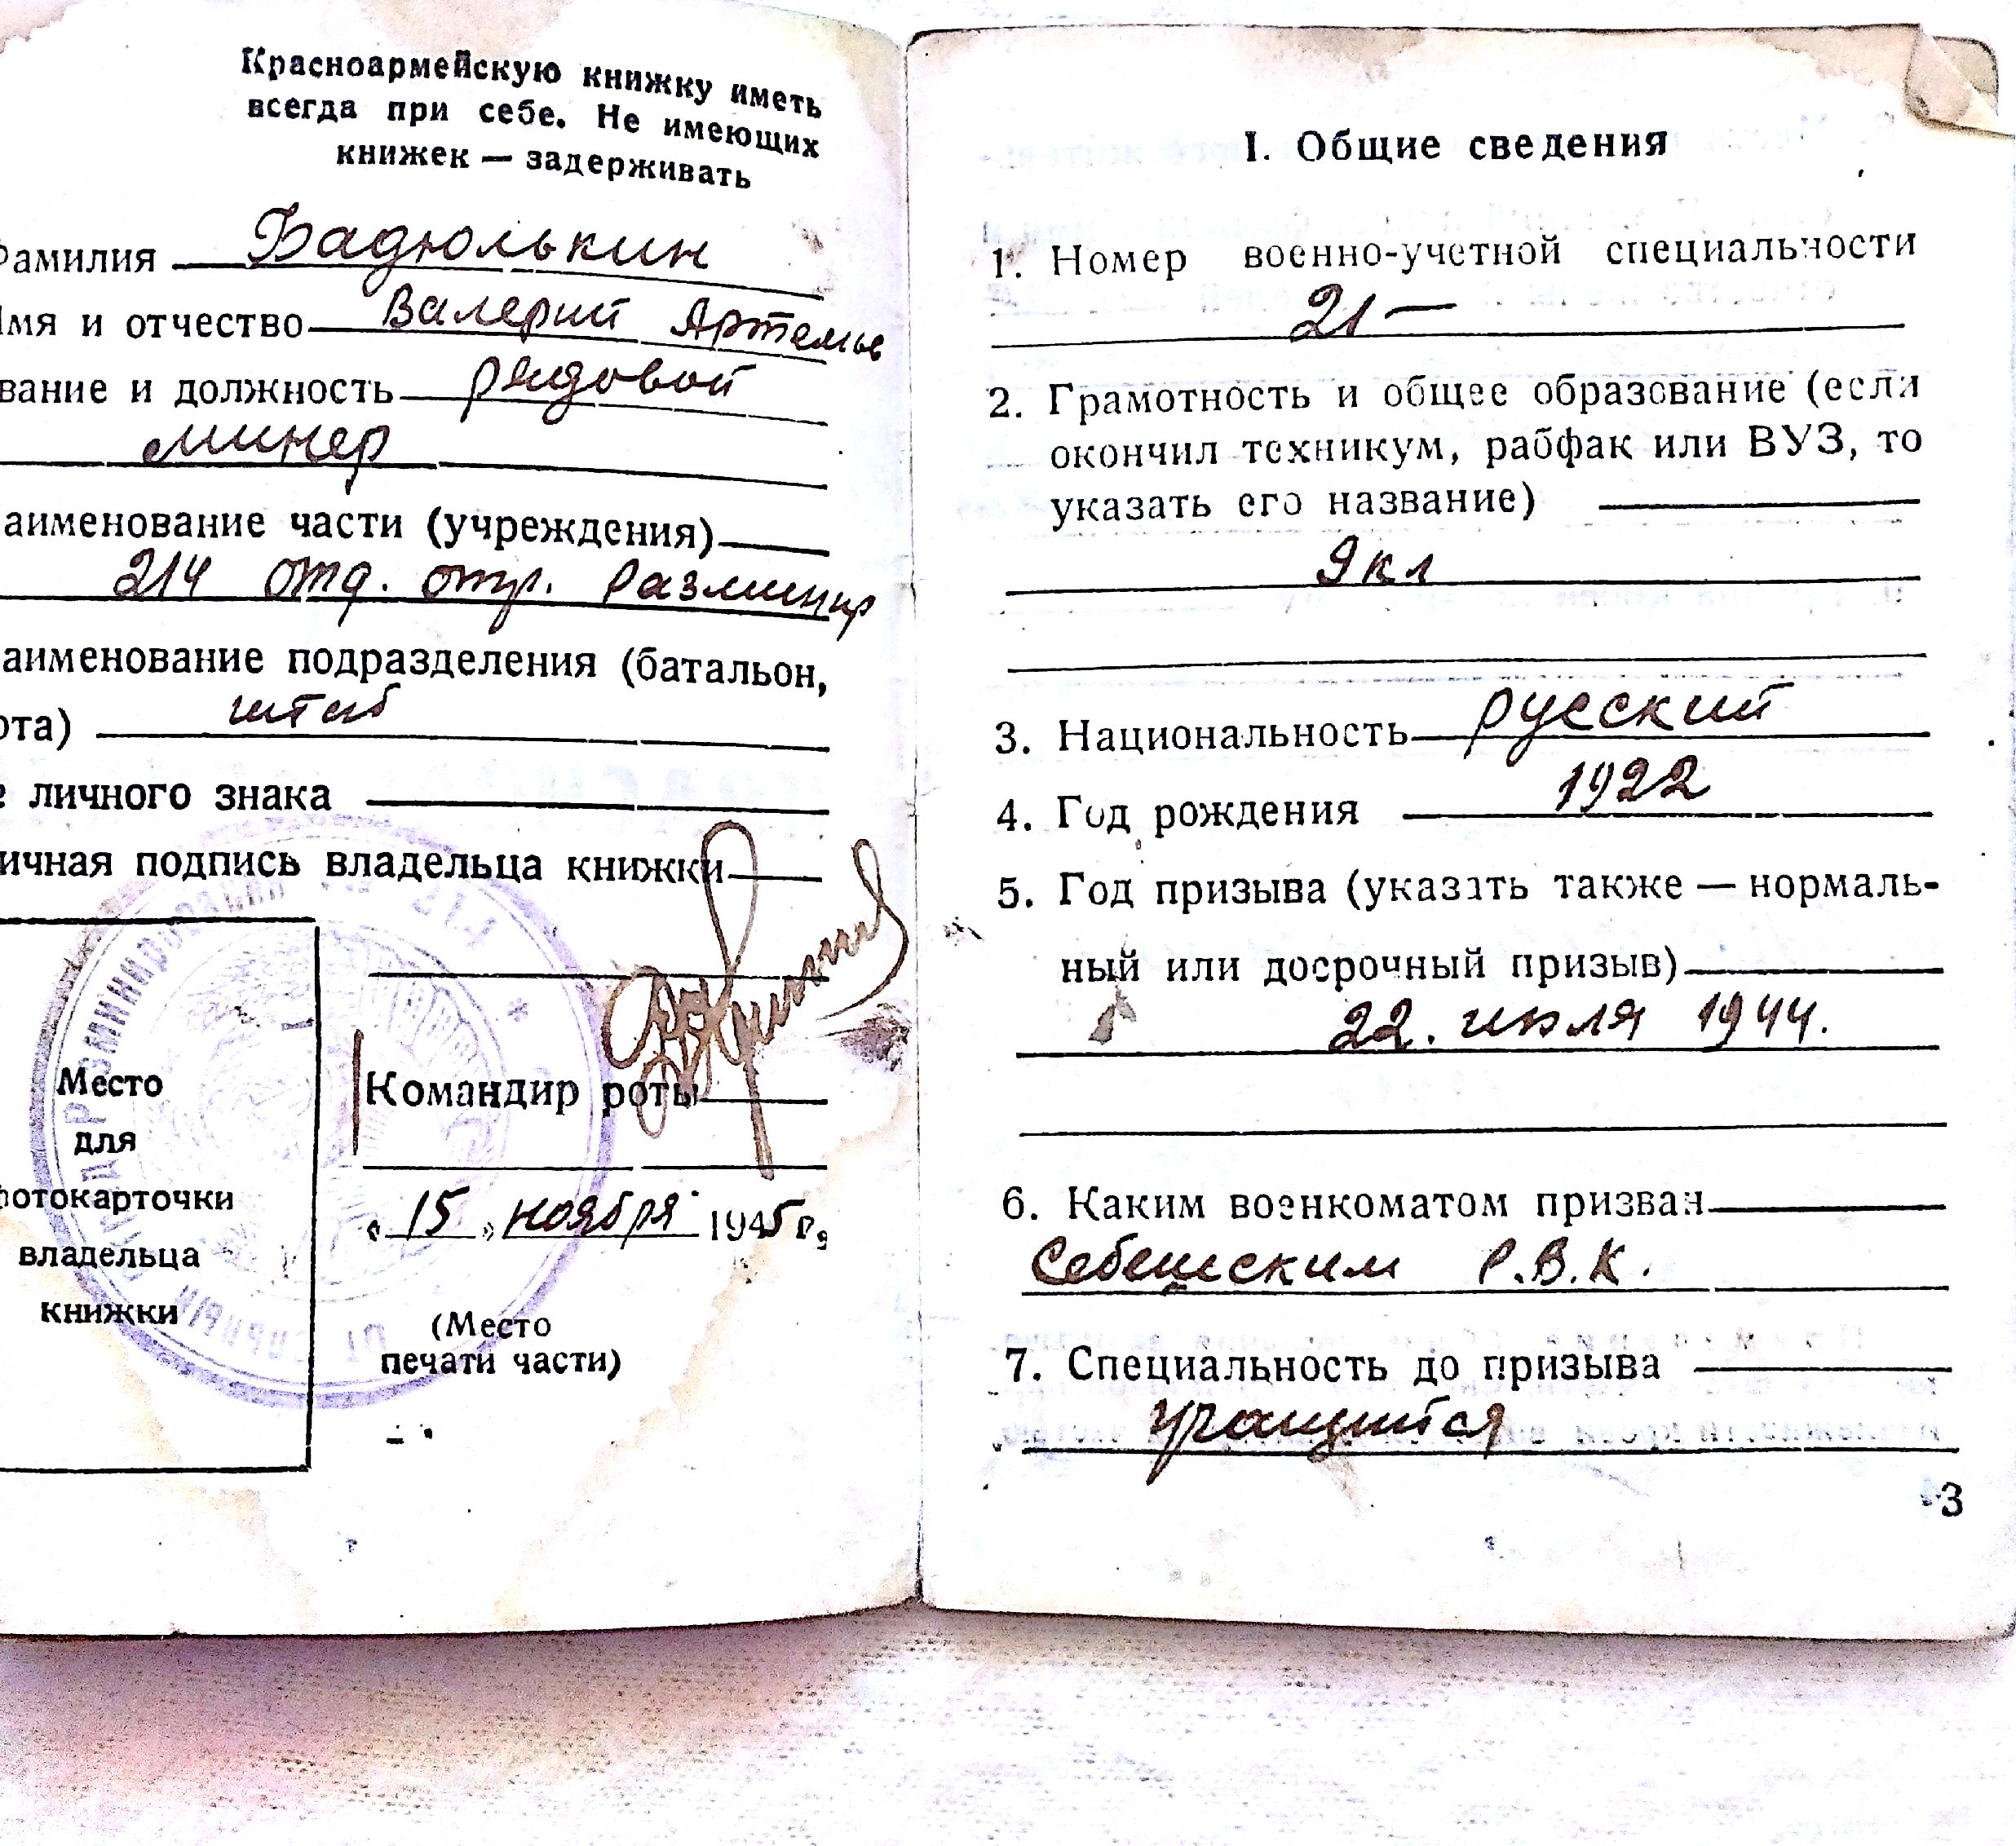 Красноармейскую книжку иметь
всегда при себе. Не имеющих
книжек — задерживать
Фамилия Бадюлькин
Имя и отчество Валерий Артемье
вание и должность рядовой
минер
аименование части (учреждения)
214 отд. отр. разминир
аименование подразделения (батальон,
ота) штаб
личного знака
ичная подпись владельца книжки
Место
для
фотокарточки
владельца
книжки
Командир роты
« 15 » ноября 1945 г.
(Место
печати части)
I. Общие сведения
1. Номер военно-учетной специальности
21 —
2. Грамотность и общее образование (если
окончил техникум, рабфак или ВУЗ, то
указать его название)
9 кл
3. Национальность русский
4. Год рождения 1922
5. Год призыва (указать также — нормаль-
ный или досрочный призыв)
22. июля 1944.
6. Каким военкоматом призван
Себешским Р.В.К.
7. Специальность до призыва
учащийся
3